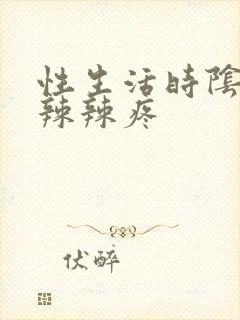 性生活時陰
辣辣疼
伏醉